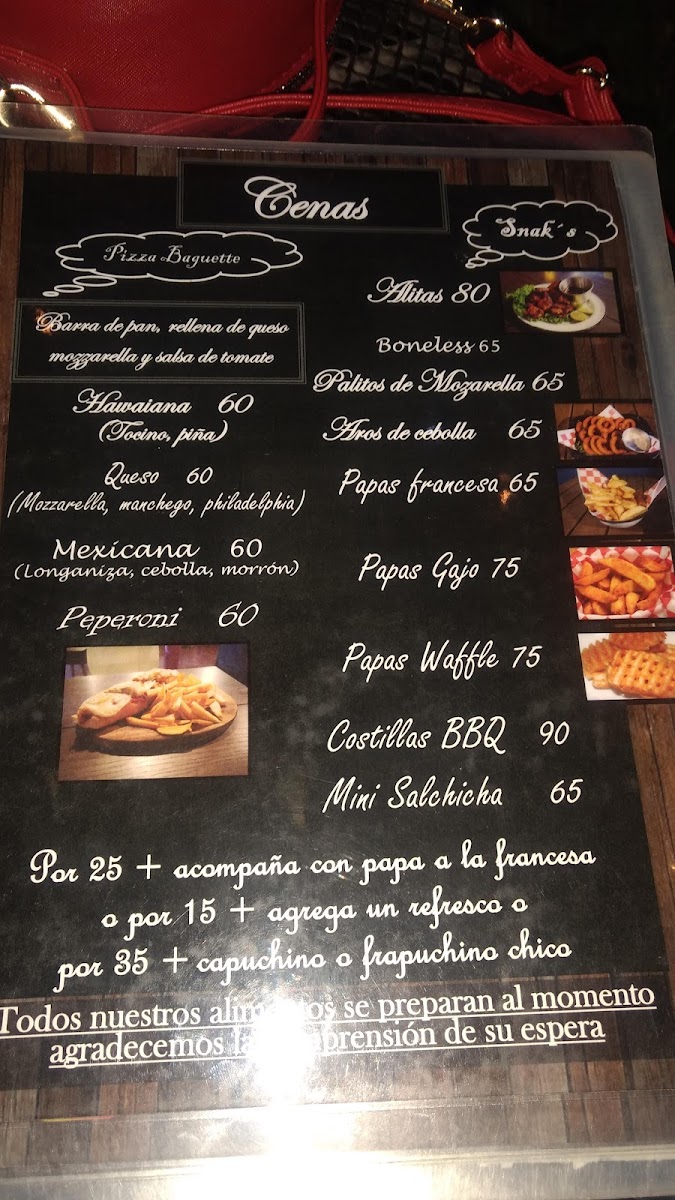 Cenas
Pizza Baguette
Barra de pan, rellena de queso
mozzarella y salsa de tomate
Hawaiana 60
(Tocino, piña)
Queso 60
(Mozzarella, manchego, philadelphia)
Mexicana 60
(Longaniza, cebolla, morrón)
Peperoni 60
Snak´s
Alitas 80
Boneless 65
Palitos de Mozarella 65
Aros de cebolla 65
Papas francesa 65
Papas Gajo 75
Papas Waffle 75
Costillas BBQ 90
Mini Salchicha 65
Por 25 + acompaña con papa a la francesa
o por 15 + agrega un refresco o
por 35 + capuchino o frapuchino chico
Todos nuestros alimentos se preparan al momento
agradecemos la comprensión de su espera